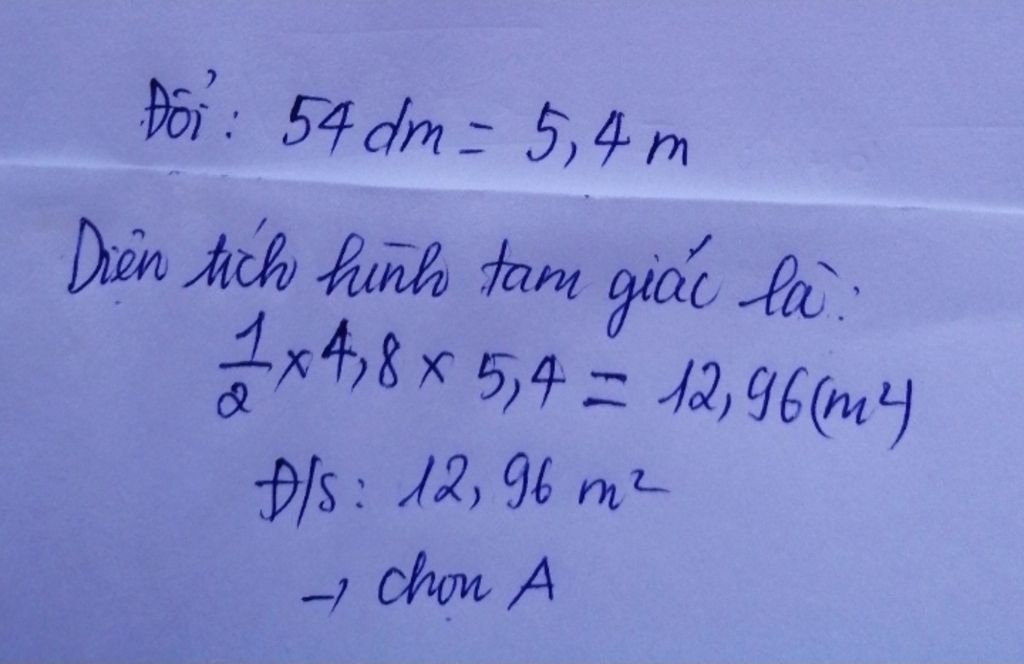 Đổi: 54 dm = 5,4 m
Diện tích hình tam giác là:
1/2 x 4,8 x 5,4 = 12,96 (m²)
Đ/S: 12,96 m²
→ chọn A